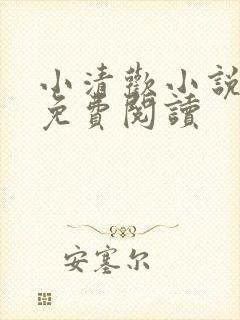 小清歡小說
免費閱讀
安塞尔